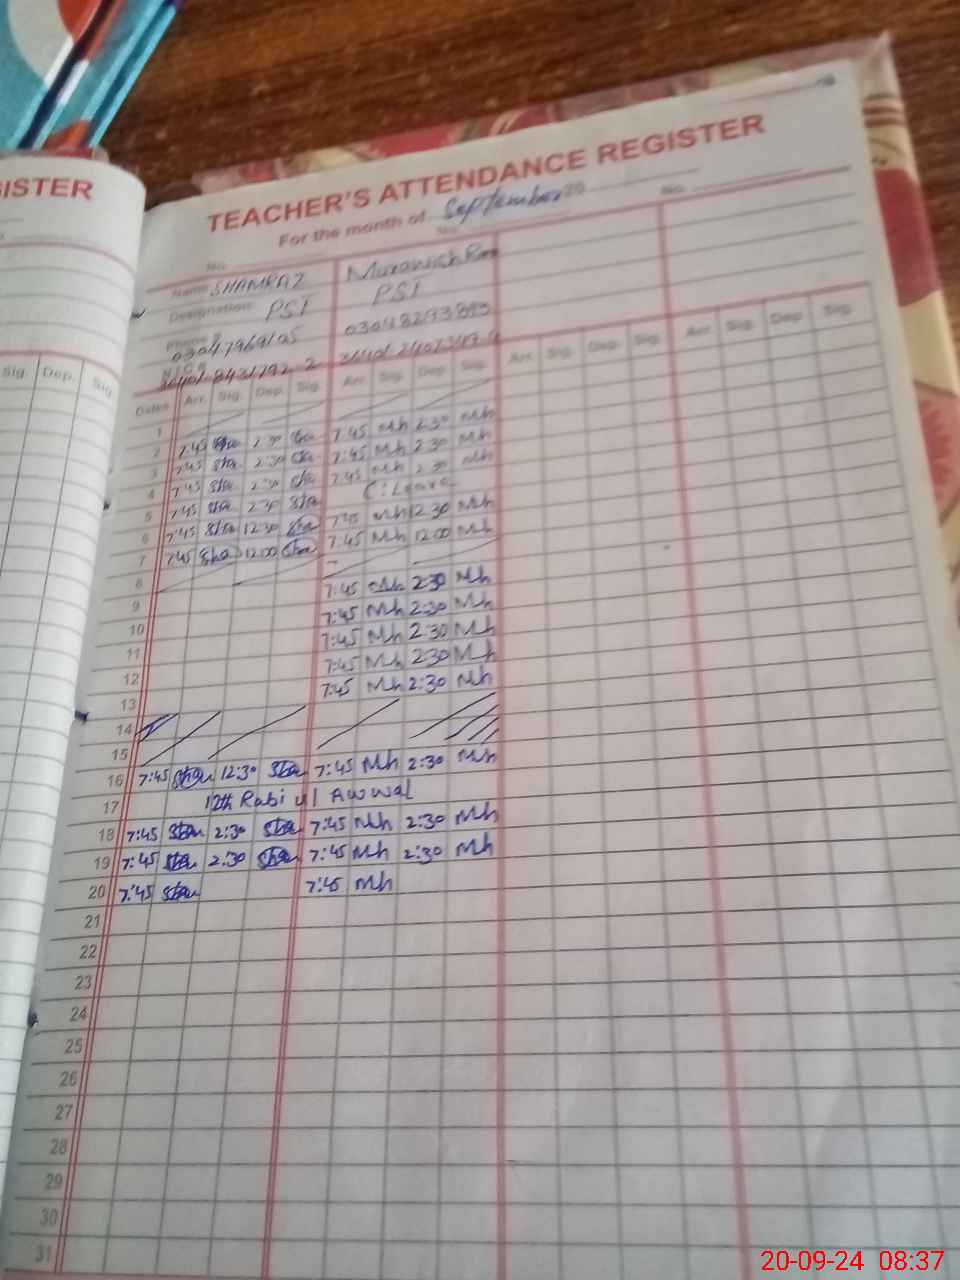 GISTER
Sig. Dep. Sig.
TEACHER'S ATTENDANCE REGISTER
For the month of September 20
No. No. No.
Name SHAMRAZ
Designation PSI PSI
Phone # 03047969105
N.I.C #
Dates Arr. Sig. Dep. Sig. Arr. Sig. Dep. Sig. Arr. Sig. Dep. Sig. Arr. Sig. Dep. Sig.
1
2 7:45 Sha 2:30 Sha 7:45 Mh 2:30 Mh
3 7:45 Sha 2:30 Sha 7:45 Mh 2:30 Mh
4 7:45 Sha 2:30 Sha 7:45 Mh 2:30 Mh
5 7:45 Sha 2:30 Sha C:Leave
6 7:45 Sha 12:30 Sha 7:45 Mh 12:30 Mh
7 7:45 Sha 12:00 Sha 7:45 Mh 12:00 Mh
8
9 7:45 Mh 2:30 Mh
10 7:45 Mh 2:30 Mh
11 7:45 Mh 2:30 Mh
12 7:45 Mh 2:30 Mh
13 7:45 Mh 2:30 Mh
14
15
16 7:45 Sha 12:30 Sha 7:45 Mh 2:30 Mh
17 12th Rabi ul Awwal
18 7:45 Sha 2:30 Sha 7:45 Mh 2:30 Mh
19 7:45 Sha 2:30 Sha 7:45 Mh 2:30 Mh
20 7:45 Sha 7:45 Mh
21
22
23
24
25
26
27
28
29
30
31
20-09-24 08:37